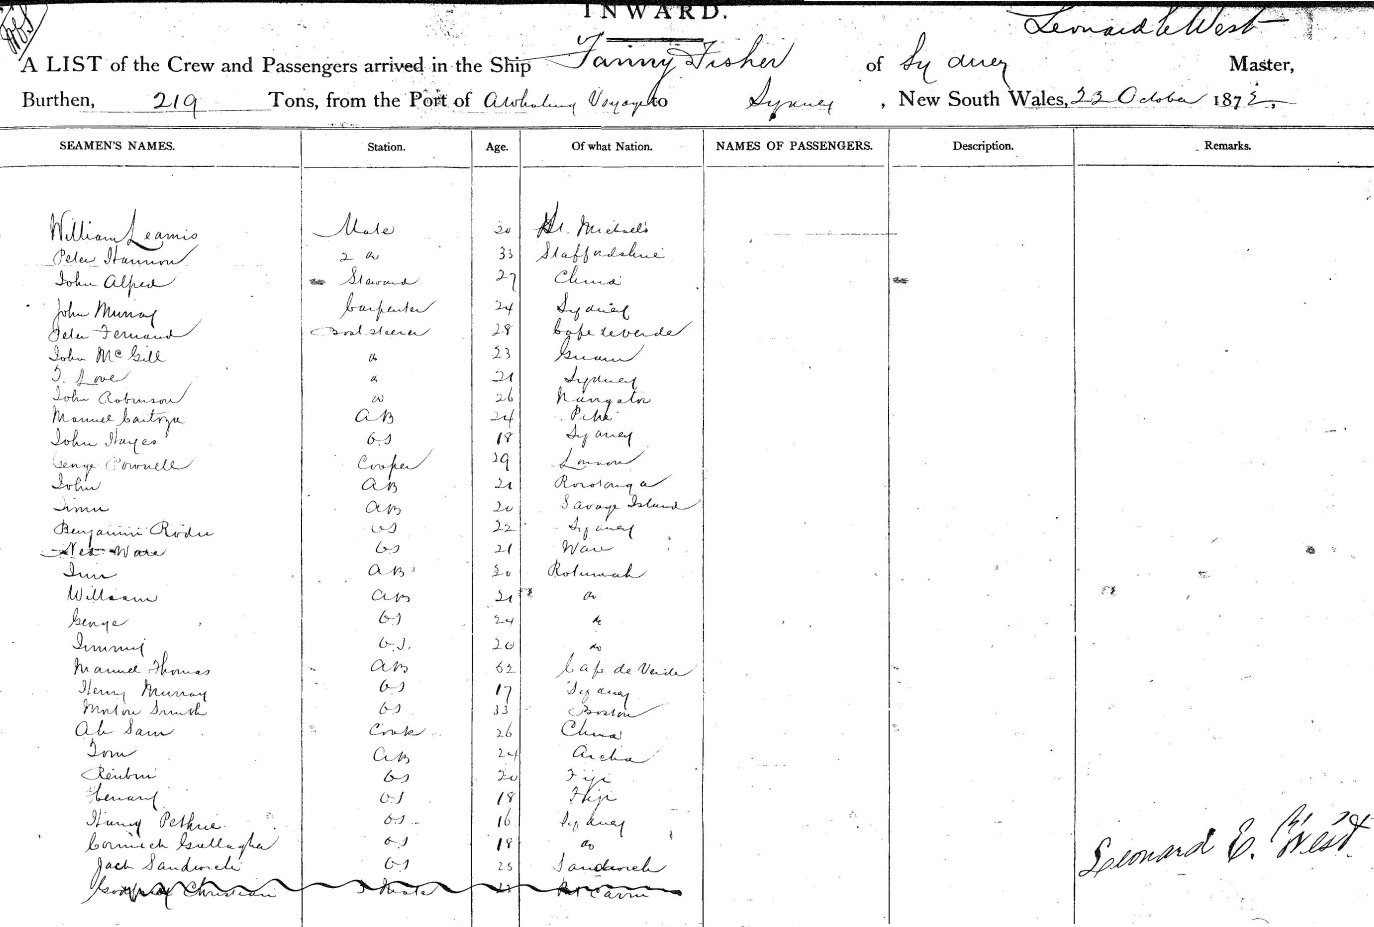 INWARD.
Leonard E West
A LIST of the Crew and Passengers arrived in the Ship Fanny Fisher of Sydney Master,
Burthen, 219 Tons, from the Port of a Whaling Voyage to Sydney, New South Wales, 22 October 1872.
SEAMEN'S NAMES. Station. Age. Of what Nation. NAMES OF PASSENGERS. Description. Remarks.
William Mate 20 St. Michael's
Peter Hannon 2 do 33 Staffordshire
John Alfred Steward 27 China
John Murray Carpenter 24 Sydney
Peter Fernand Boatsteerer 28 Cape de Verde
John McGill do 23 Guam
T. Love do 21 Sydney
John Robinson do 26
Manuel AB 24
John Hayes OS 18 Sydney
George Cooper 29 London
John AB 21 Rorotonga
AB 20 Savage Island
Benjamin OS 22 Sydney
Ware OS 21 Ware
Jim AB 20 Rotumah
William AB 21 do
George OS 24 do
Jimmy O.S. 20 do
Manuel Thomas AB 32 Cape de Verde
Henry Murray OS 17 Sydney
Morton Smith OS 33 Boston
Ah Sam Cook 26 China
Tom AB 24
Reubin OS 20 Fiji
OS 18 Fiji
Harry OS 16 Sydney
Cormick Gallagher OS 18 do
Jack Sandwich OS 25 Sandwich
Christian 3 Mate
Leonard E. West